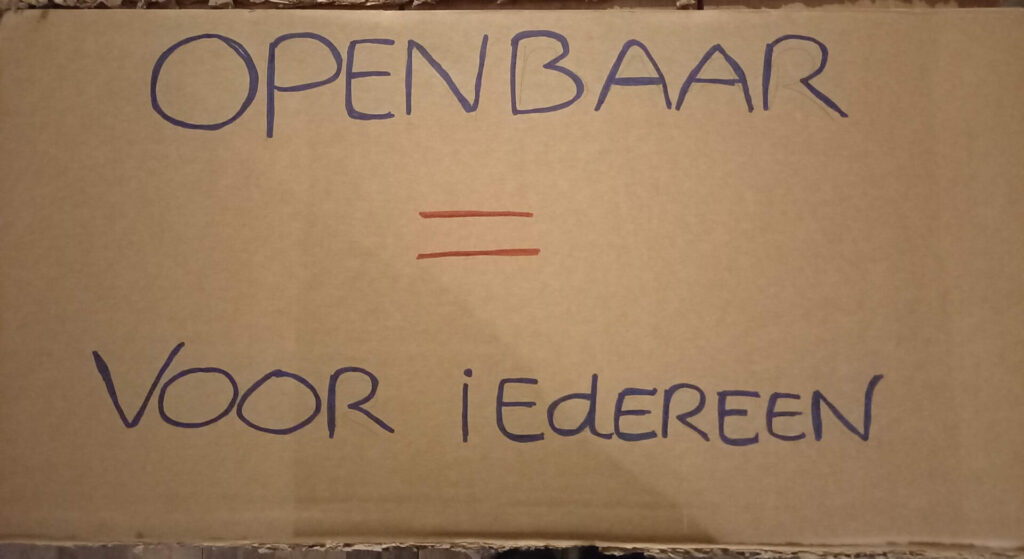 OPENBAAR
=
VOOR iEdEREEN